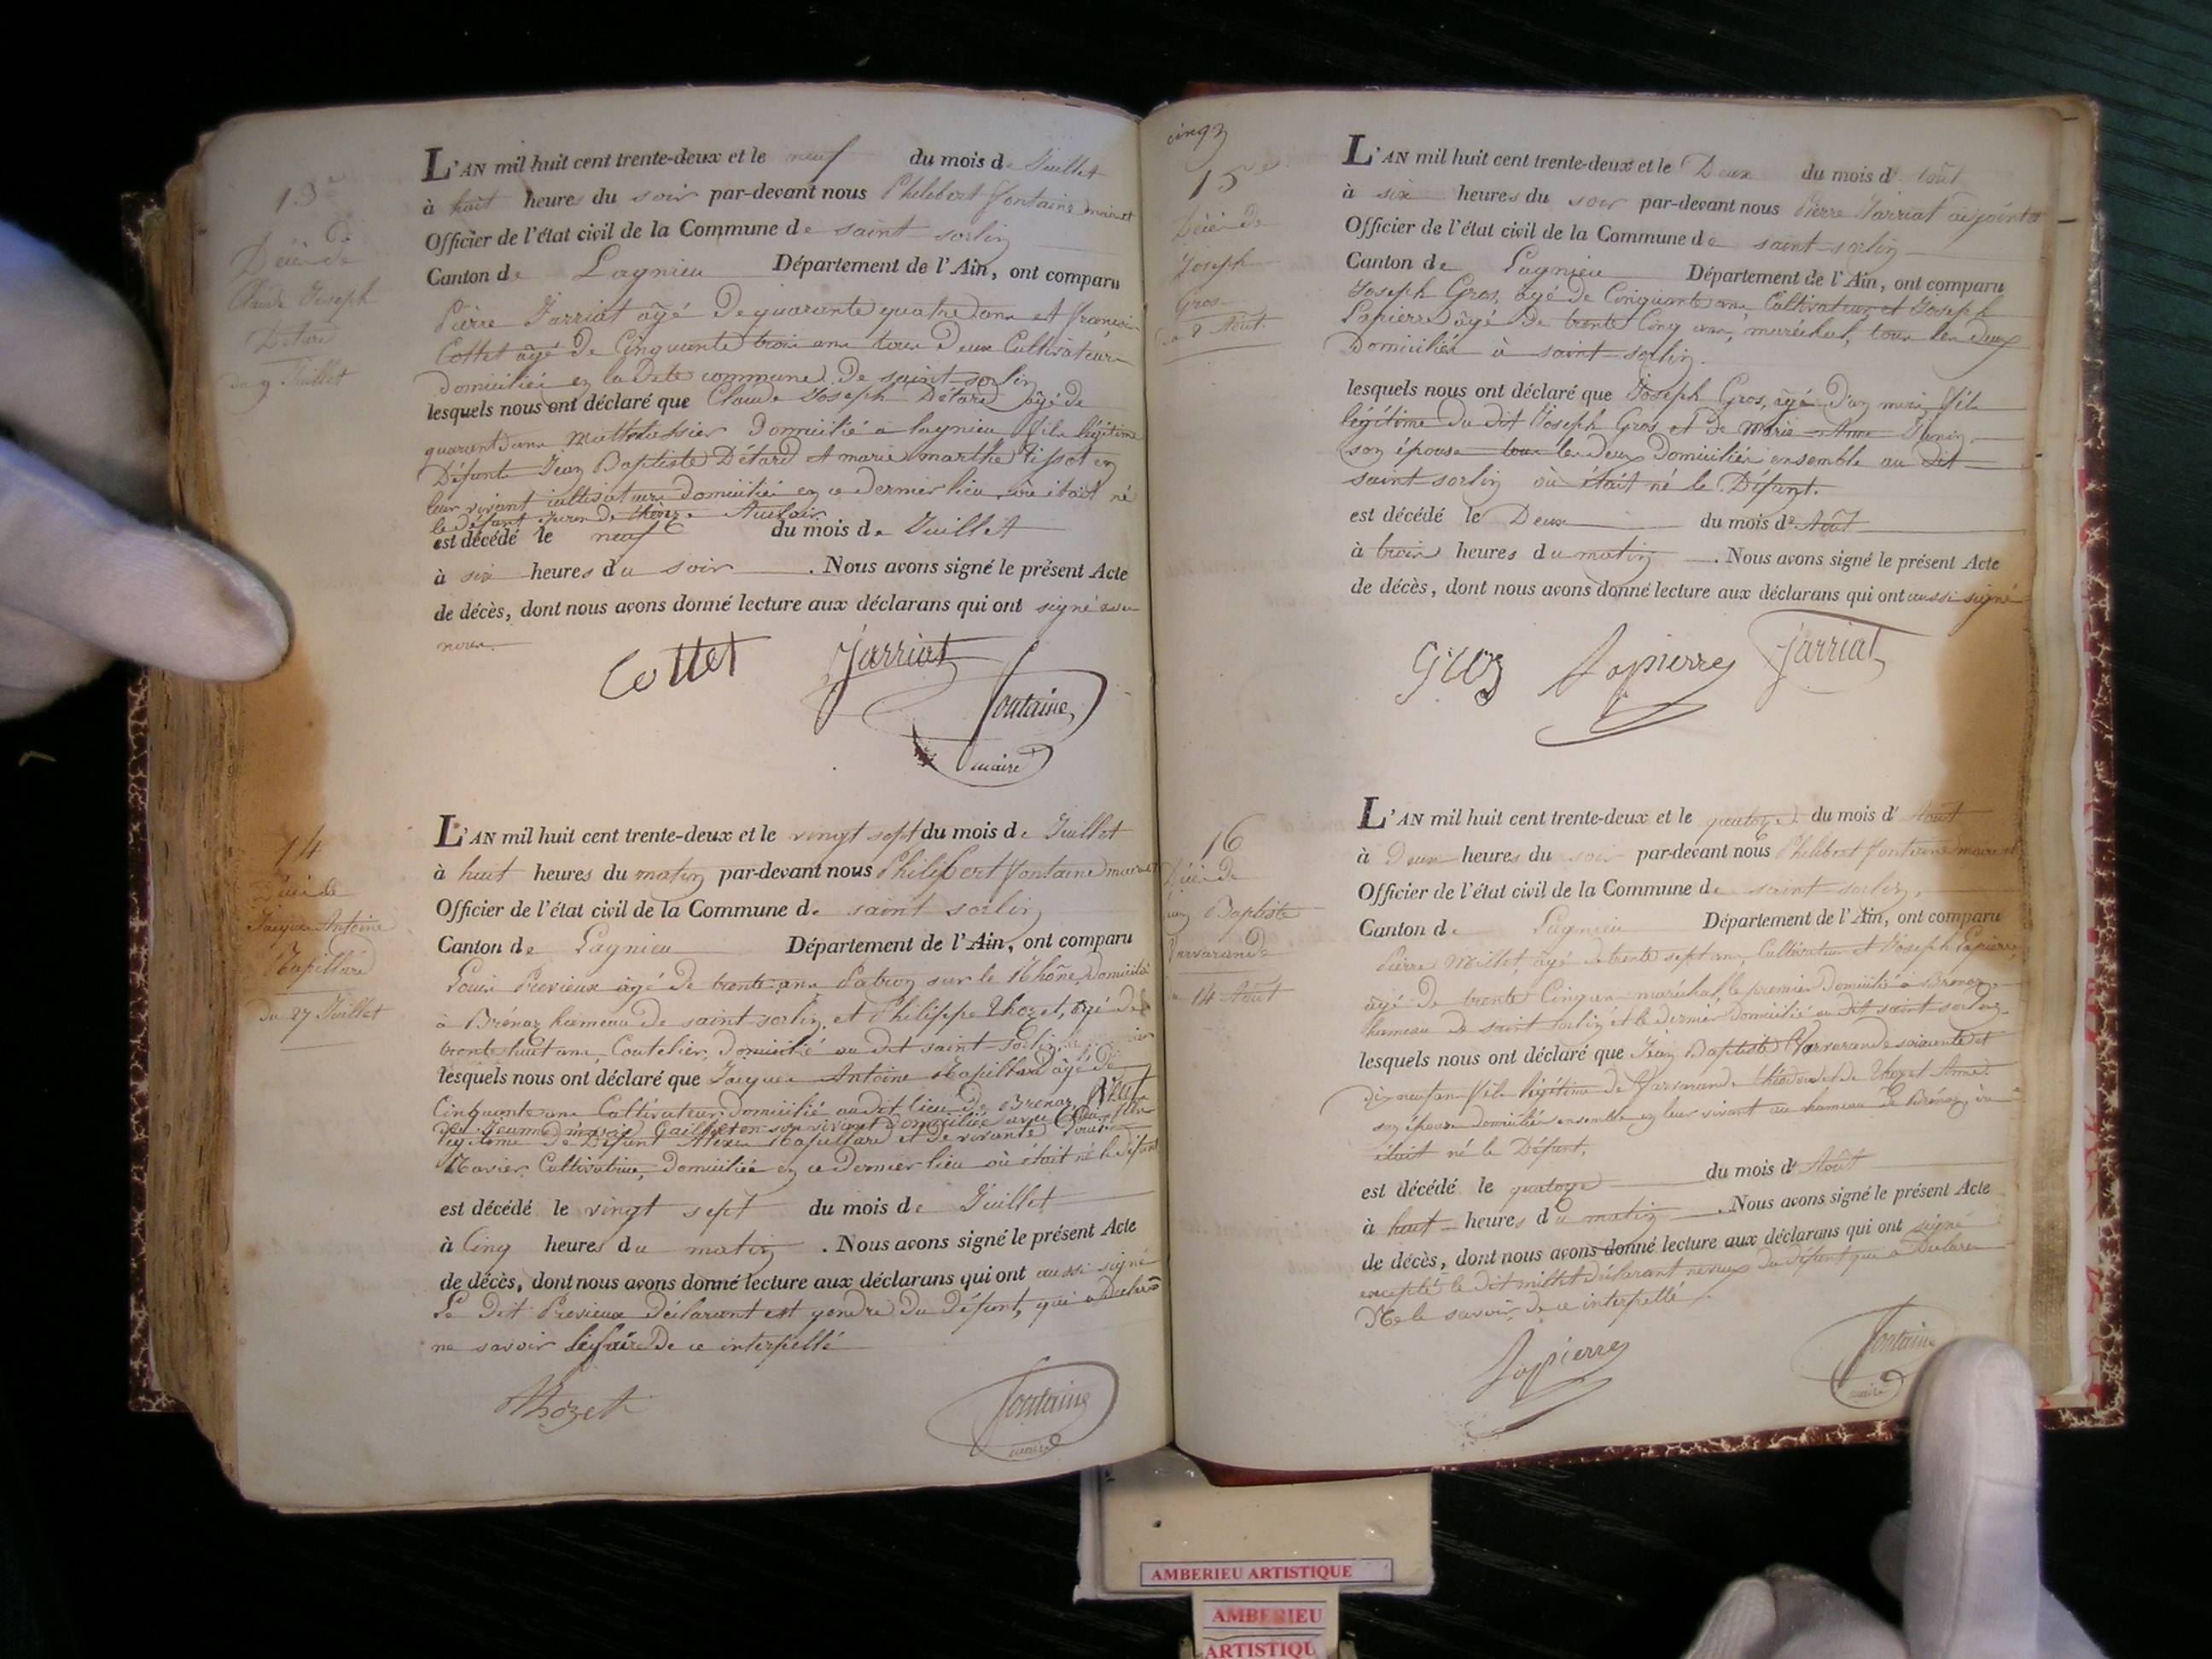 13e
Décès de
Claude Joseph
Détard
du 9 Juillet
L'AN mil huit cent trente-deux et le neuf du mois de Juillet
à huit heures du soir par-devant nous Philibert Fontaine maire et
Officier de l'état civil de la Commune de saint sorlin
Canton de Lagnieu Département de l'Ain, ont comparu
Pierre Jarriat âgé de quarante quatre ans et françois
Cottet âgé de Cinquante trois ans tous deux Cultivateurs
domiciliés en la dite commune de saint-sorlin
lesquels nous ont déclaré que Claude Joseph Détard âgé de
quarante ans domicilié à lagnieu fils légitime
Défunts Jean Baptiste Détard et marie marthe Tissot en
leur vivant cultivateurs domiciliés en ce dernier lieu où était né
le défunt
est décédé le neuf du mois de Juillet
à six heures du soir . Nous avons signé le présent Acte
de décès, dont nous avons donné lecture aux déclarans qui ont signé avec
nous.
Cottet Jarriat
Fontaine
maire
14
Décès de
Jacques Antoine
Rapillard
du 27 Juillet
L'AN mil huit cent trente-deux et le vingt sept du mois de Juillet
à huit heures du matin par-devant nous Philibert Fontaine maire et
Officier de l'état civil de la Commune de saint sorlin
Canton de Lagnieu Département de l'Ain, ont comparu
Louis Prévieux âgé de trente ans Patron sur le Rhône, domicilié
à Brénaz hameau de saint-sorlin, et Philippe Thozet, âgé de
trente huit ans, Coutelier, domicilié au dit saint-sorlin
lesquels nous ont déclaré que Jacques Antoine Rapillard âgé de
Cinquante ans Cultivateur domicilié au dit lieu de Brénaz
Jeanne marie son vivant domiciliée avec lui fils
légitime de Défunt Alexis Rapillard et de vivante
Ravier Cultivatrice, domiciliée en ce dernier lieu où était né le défunt
est décédé le vingt sept du mois de Juillet
à Cinq heures du matin . Nous avons signé le présent Acte
de décès, dont nous avons donné lecture aux déclarans qui ont aussi signé
Le Dit Prévieux Déclarant est gendre du Défunt, qui a déclaré
ne savoir le faire de ce interpellé
Thozet
Fontaine
maire
cinq
15e
Décès de
Joseph
Gros
2 Août
L'AN mil huit cent trente-deux et le Deux du mois d' Août
à six heures du soir par-devant nous Pierre Jarriat adjoint et
Officier de l'état civil de la Commune de saint-sorlin
Canton de Lagnieu Département de l'Ain, ont comparu
Joseph Gros, âgé de Cinquante ans, Cultivateur et Joseph
Lapierre âgé de trente Cinq ans, maréchal, tous les deux
Domiciliés à saint-sorlin.
lesquels nous ont déclaré que Joseph Gros, âgé d'un mois, fils
légitime du dit Joseph Gros et de Marie-Anne Janin
son épouse tous les deux domiciliés ensemble au dit
saint-sorlin où était né le Défunt.
est décédé le Deux du mois d' Août
à trois heures du matin . Nous avons signé le présent Acte
de décès, dont nous avons donné lecture aux déclarans qui ont aussi signé
Gros Lapierre Jarriat
16
Décès de
Baptiste
Varvarande
14 Août
L'AN mil huit cent trente-deux et le quatorze du mois d' Août
à Deux heures du soir par-devant nous Philibert Fontaine maire et
Officier de l'état civil de la Commune de saint-sorlin,
Canton de Lagnieu Département de l'Ain, ont comparu
Pierre Millet, âgé de trente sept ans, Cultivateur et Joseph Lapierre,
âgé de trente Cinq ans maréchal, le premier domicilié à Brénaz,
hameau de saint sorlin et le dernier domicilié au dit saint-sorlin
lesquels nous ont déclaré que Jean Baptiste Varvarande soixante et
dix neuf ans fils légitime de Varvarande et de Thozet Anne
son épouse domiciliés ensemble en leur vivant au hameau de Brénaz, où
était né le Défunt.
est décédé le quatorze du mois d' Août
à huit heures du matin . Nous avons signé le présent Acte
de décès, dont nous avons donné lecture aux déclarans qui ont signé
excepté le dit millet déclarant neveu du défunt qui a déclaré
Ne le savoir de ce interpellé.
Lapierre
Fontaine
maire
AMBERIEU ARTISTIQUE
AMBERIEU
ARTISTIQU